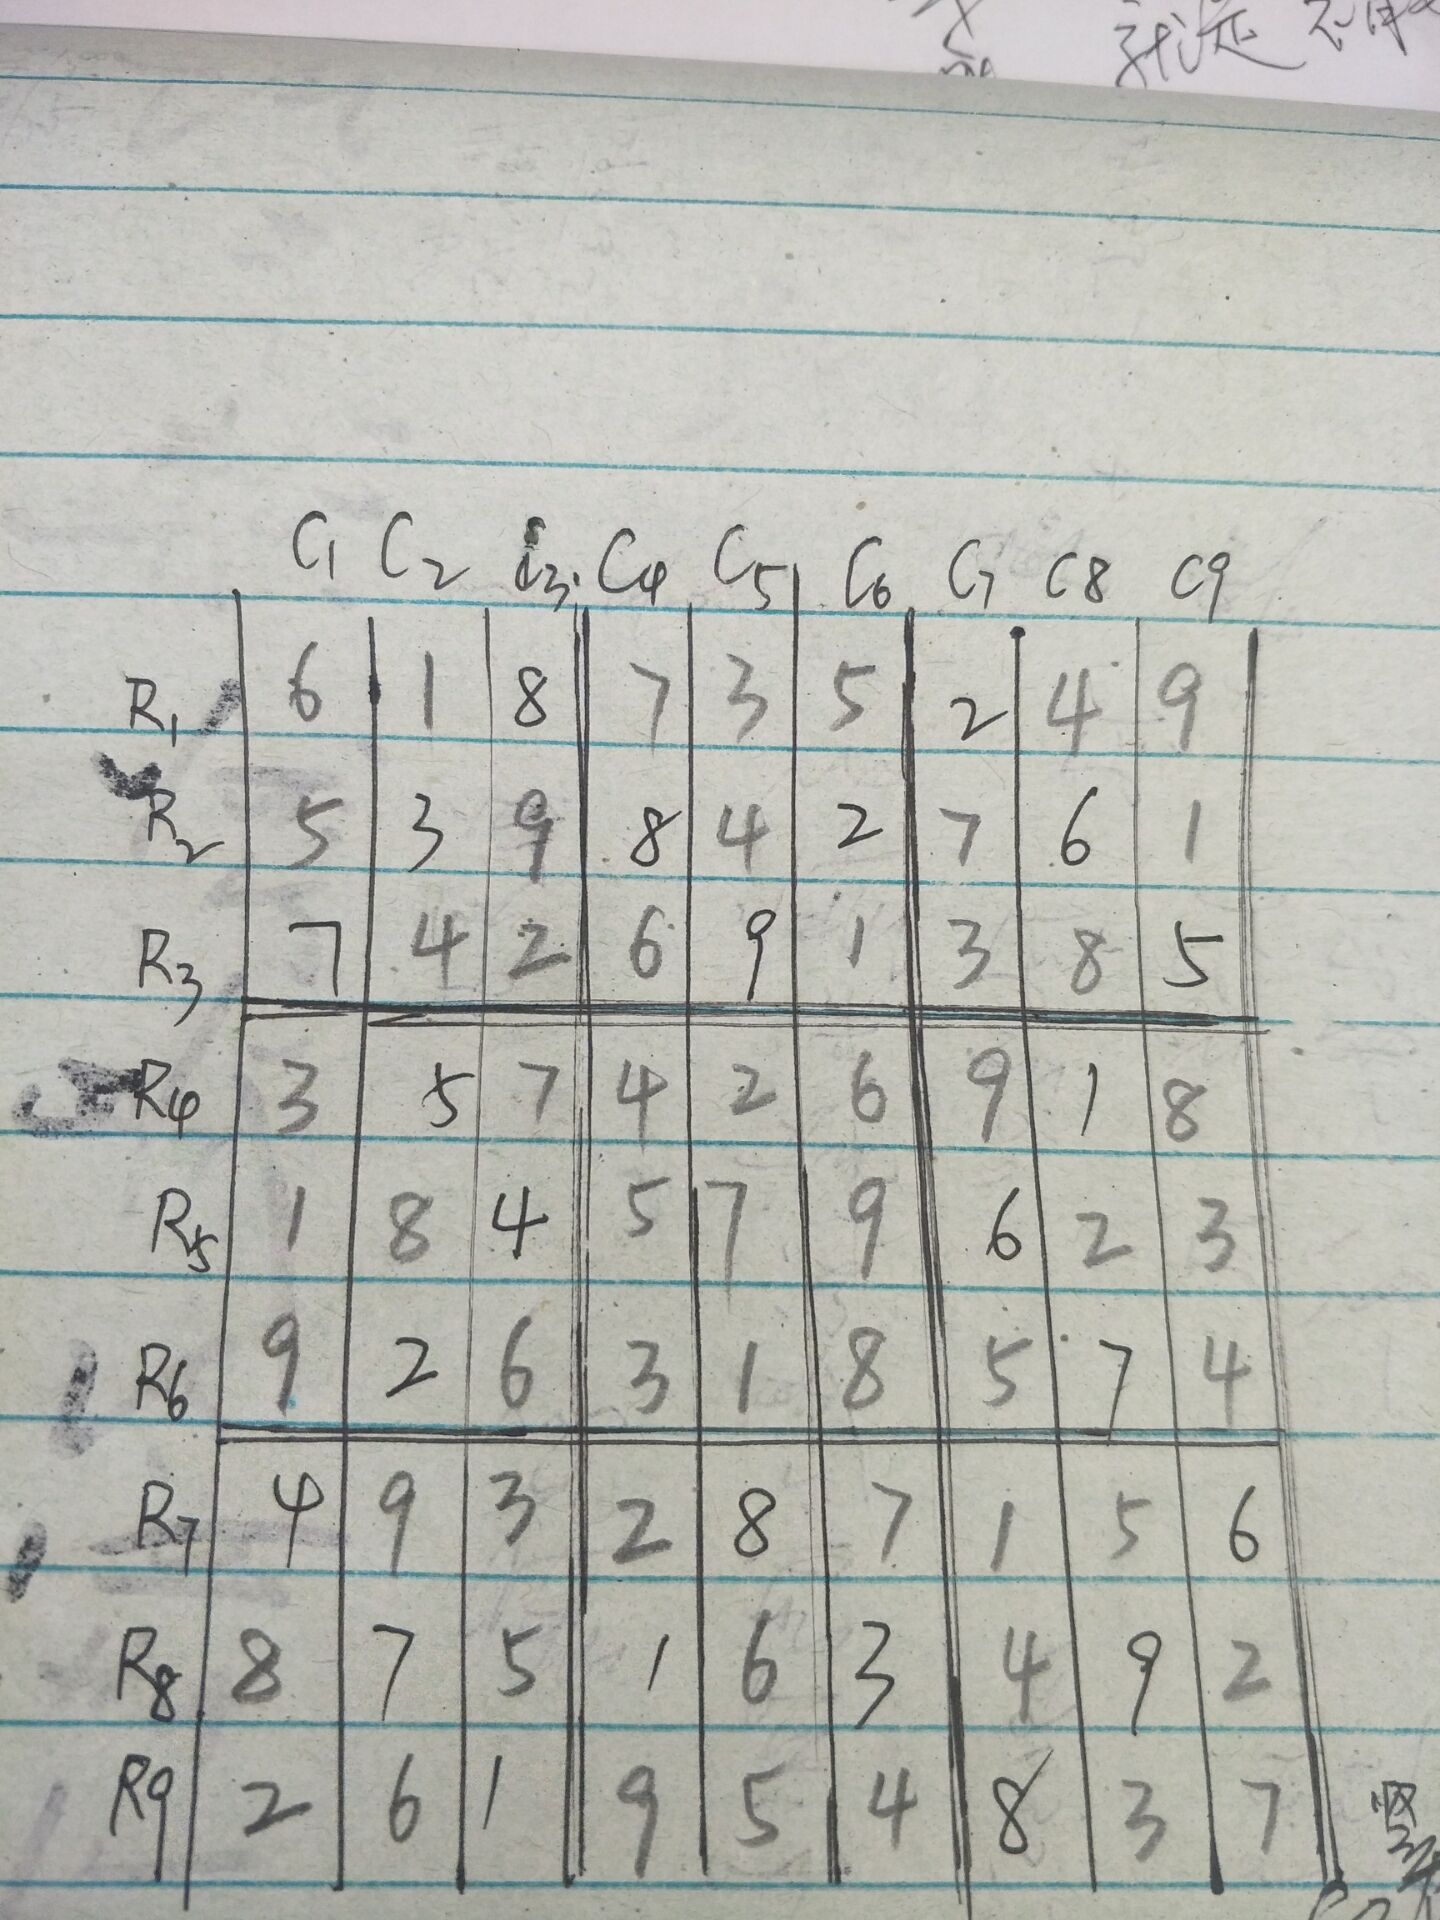 就是
C1 C2 C3 C4 C5 C6 C7 C8 C9
R1 6 1 8 7 3 5 2 4 9
R2 5 3 9 8 4 2 7 6 1
R3 7 4 2 6 9 1 3 8 5
R4 3 5 7 4 2 6 9 1 8
R5 1 8 4 5 7 9 6 2 3
R6 9 2 6 3 1 8 5 7 4
R7 4 9 3 2 8 7 1 5 6
R8 8 7 5 1 6 3 4 9 2
R9 2 6 1 9 5 4 8 3 7
竖